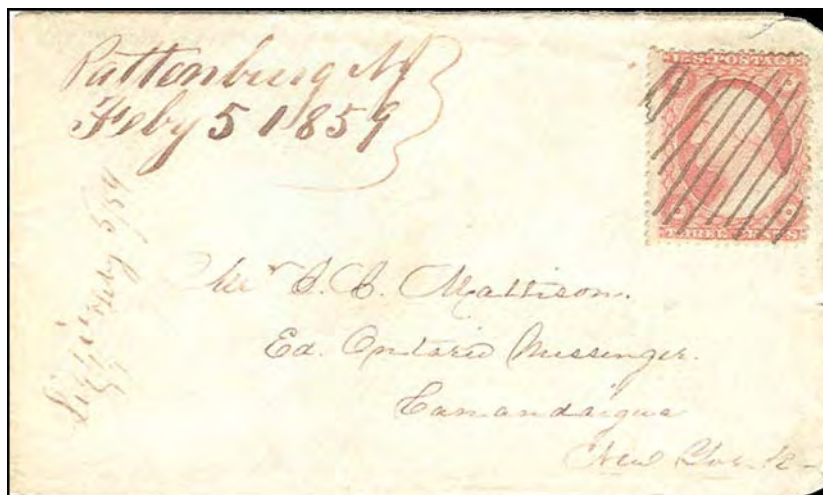 Pattenburg NJ
Feby 5 1859
U.S. POSTAGE
THREE CENTS
Mr. Mattison.
Ed. Ontario Messinger.
Canandaigua
New York